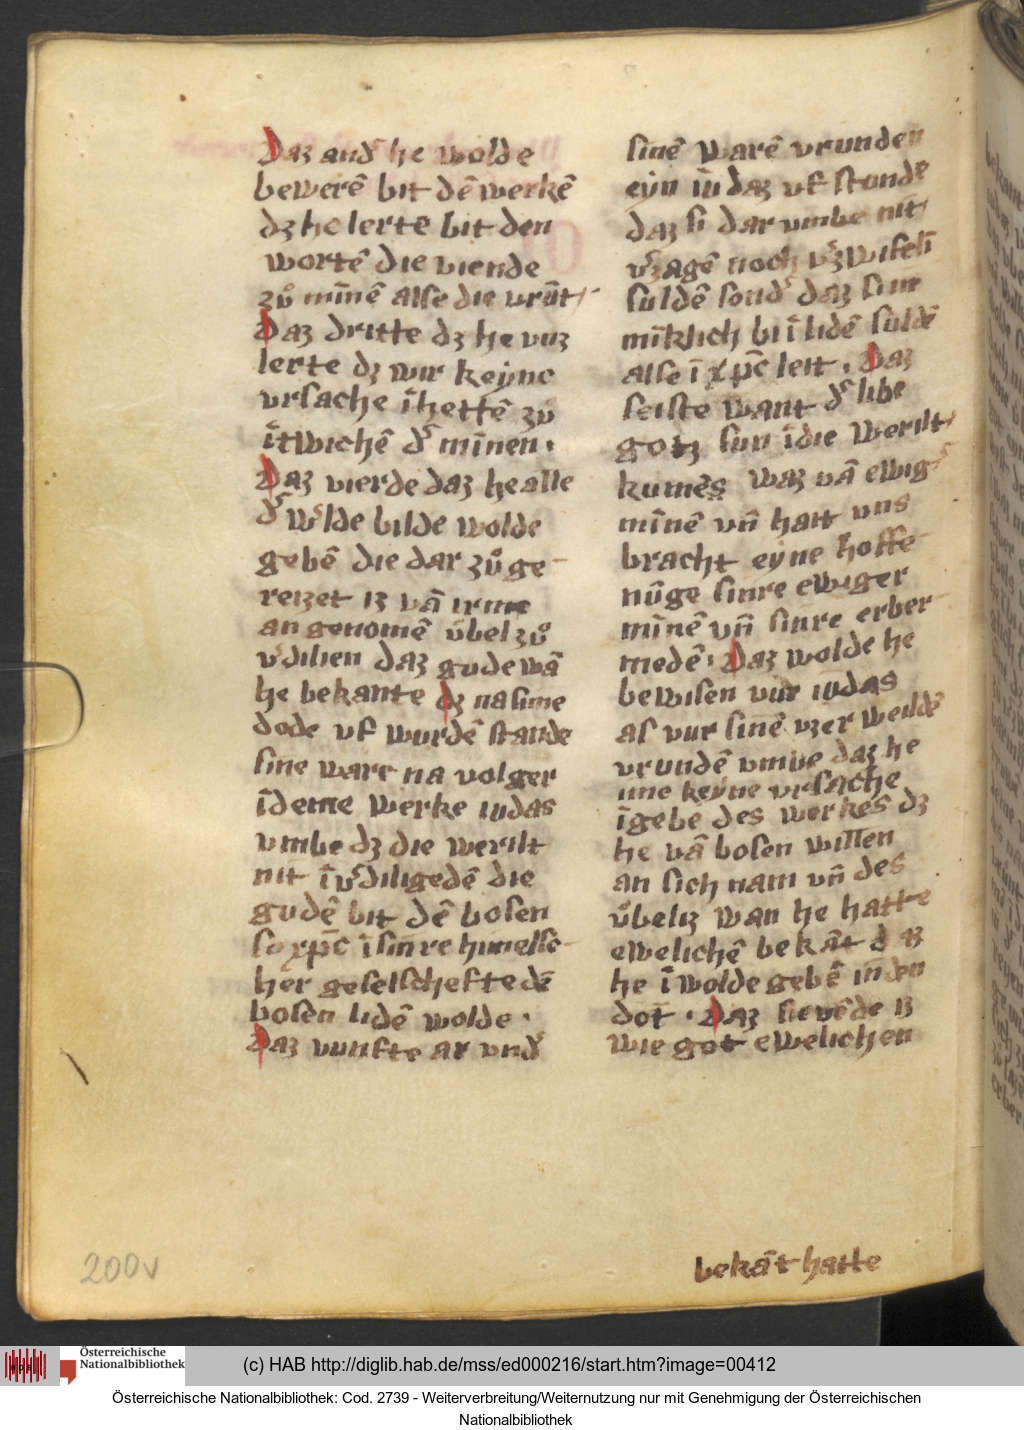 Daz and' he wolde
bewerē bit dē werkē
dz he lerte bit den
wortē die viende
zů mīnē alse die vrūt
Daz dritte dz he vnz
lerte dz wir keyne
vrsache īhettē zů
ītwichē d' mīnen.
Daz vierde daz he alle
d' w'lde bilde wolde
gebē die dar zů ge
reizet iz vā irme
an genomē übel zů
v'dilien daz gude wā
he bekante dz na sime
dode vf wurdē stande
sine ware na volger
īdeme werke iudas
vmbe dz die werilt
nit īv'diligedē die
gudē bit dē bosen
so xpc̄ ī sinre himelsc
her geselscheftedē
bosen lidē wolde.
Daz vunfte ar vnd'
sinē warē vrunden
eyn iū daz vf stonde
daz si dar vmbe nit
v'zagē noch v'zwifelī
suldē sond' daz sim
mīklich bi ī lidē suldē
alse ī xpc̄ leit. Daz
seiste want d' libe
gotz sun īdie werilt
kumēs waz vā ewig'
mīnē vn̄ hait vns
bracht eyne hoffe
nūge sinre ewiger
mīnē vn̄ sinre erber
medē. Daz wolde he
bewisen vur iudas
as vur sinē vzer weildē
vrundē vmbe daz he
ime keyne vrsache
īgebe des werkes dz
he vā bosen willen
an sich nam vn̄ des
übeliz wan he hatte
ewelichē bekāt daz
he ī wolde gebē in den
dot. Daz sievēde iz
wie got ewelichen
bekāt hatte
200v
Österreichische
Nationalbibliothek
HAB
(c) HAB http://diglib.hab.de/mss/ed000216/start.htm?image=00412
Österreichische Nationalbibliothek: Cod. 2739 - Weiterverbreitung/Weiternutzung nur mit Genehmigung der Österreichischen
Nationalbibliothek